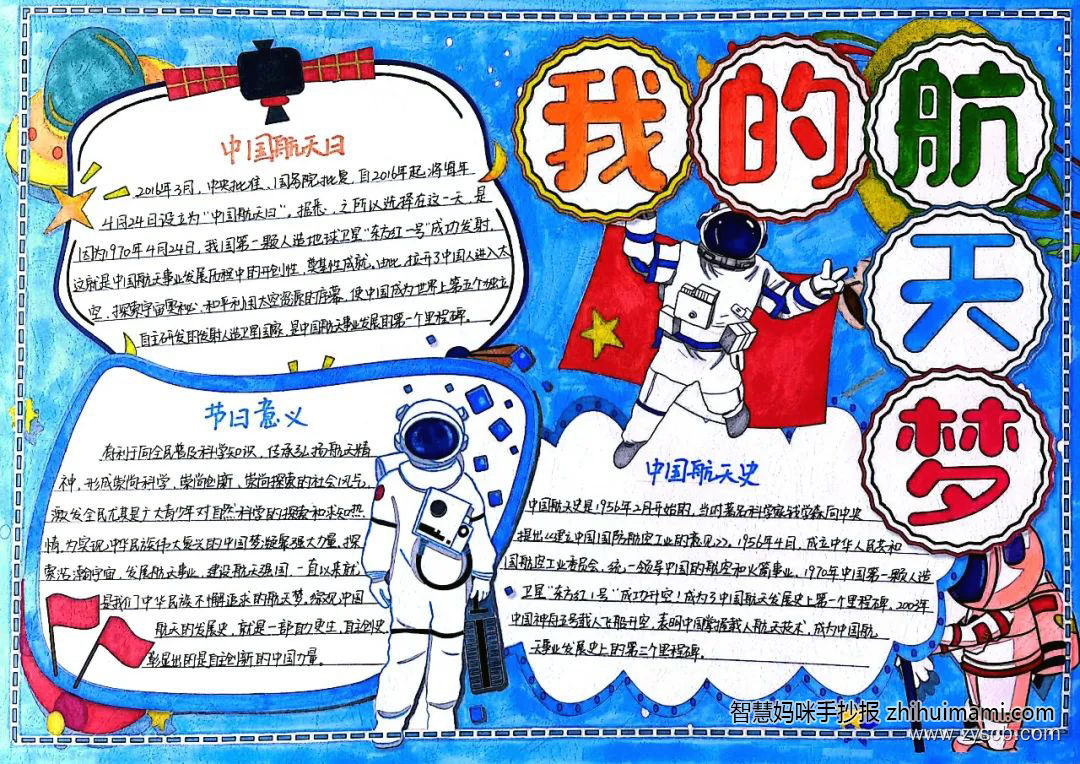 我的航天梦
中国航天日
2016年3月，中央批准、国务院批复，自2016年起，将每年
4月24日设立为"中国航天日"。据悉，之所以选择在这一天，是
因为1970年4月24日，我国第一颗人造地球卫星"东方红一号"成功发射，
这就是中国航天事业发展历程中的开创性、奠基性成就，由此，拉开了中国人进入太
空、探索宇宙奥秘、和平利用太空资源的序幕，使中国成为世界上第五个独立
自主研发的发射人造卫星国家，是中国航天事业发展的第一个里程碑。
节日意义
有利于向全民普及科学知识，传承弘扬航天精
神，形成崇尚科学、崇尚创新、崇尚探索的社会风气，
激发全民尤其是广大青少年对自然科学的探索和求知热
情，为实现中华民族伟大复兴的中国梦凝聚强大力量。探
索浩瀚宇宙，发展航天事业，建设航天强国，一直以来就
是我们中华民族不懈追求的航天梦。综观中国
航天的发展史，就是一部自力更生、自主创
彰显出的是自主创新的中国力量。
中国航天史
中国航天史是1956年2月开始的，当时著名科学家钱学森向中央
提出《建立中国国防航空工业的意见》。1956年4月，成立中华人民共和
国航空工业委员会，统一领导中国的航空和火箭事业。1970年中国第一颗人造
卫星"东方红1号"成功升空！成为了中国航天发展史上第一个里程碑，2003年
中国神舟五号载人飞船升空，表明中国掌握载人航天技术，成为中国航
天事业发展史上的第二个里程碑。
智慧妈咪手抄报 zhihuimami.com
www.zyscb.com